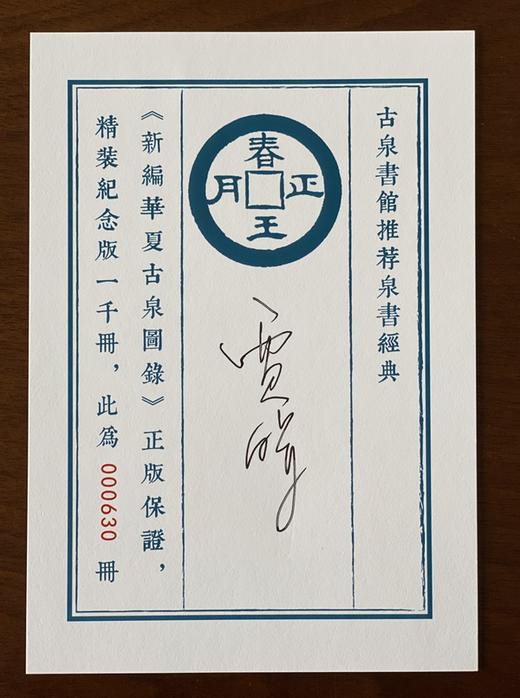 古泉書館推荐泉書經典
春王正月
《新編華夏古泉圖錄》正版保證，
精裝紀念版一千冊，此爲000630冊